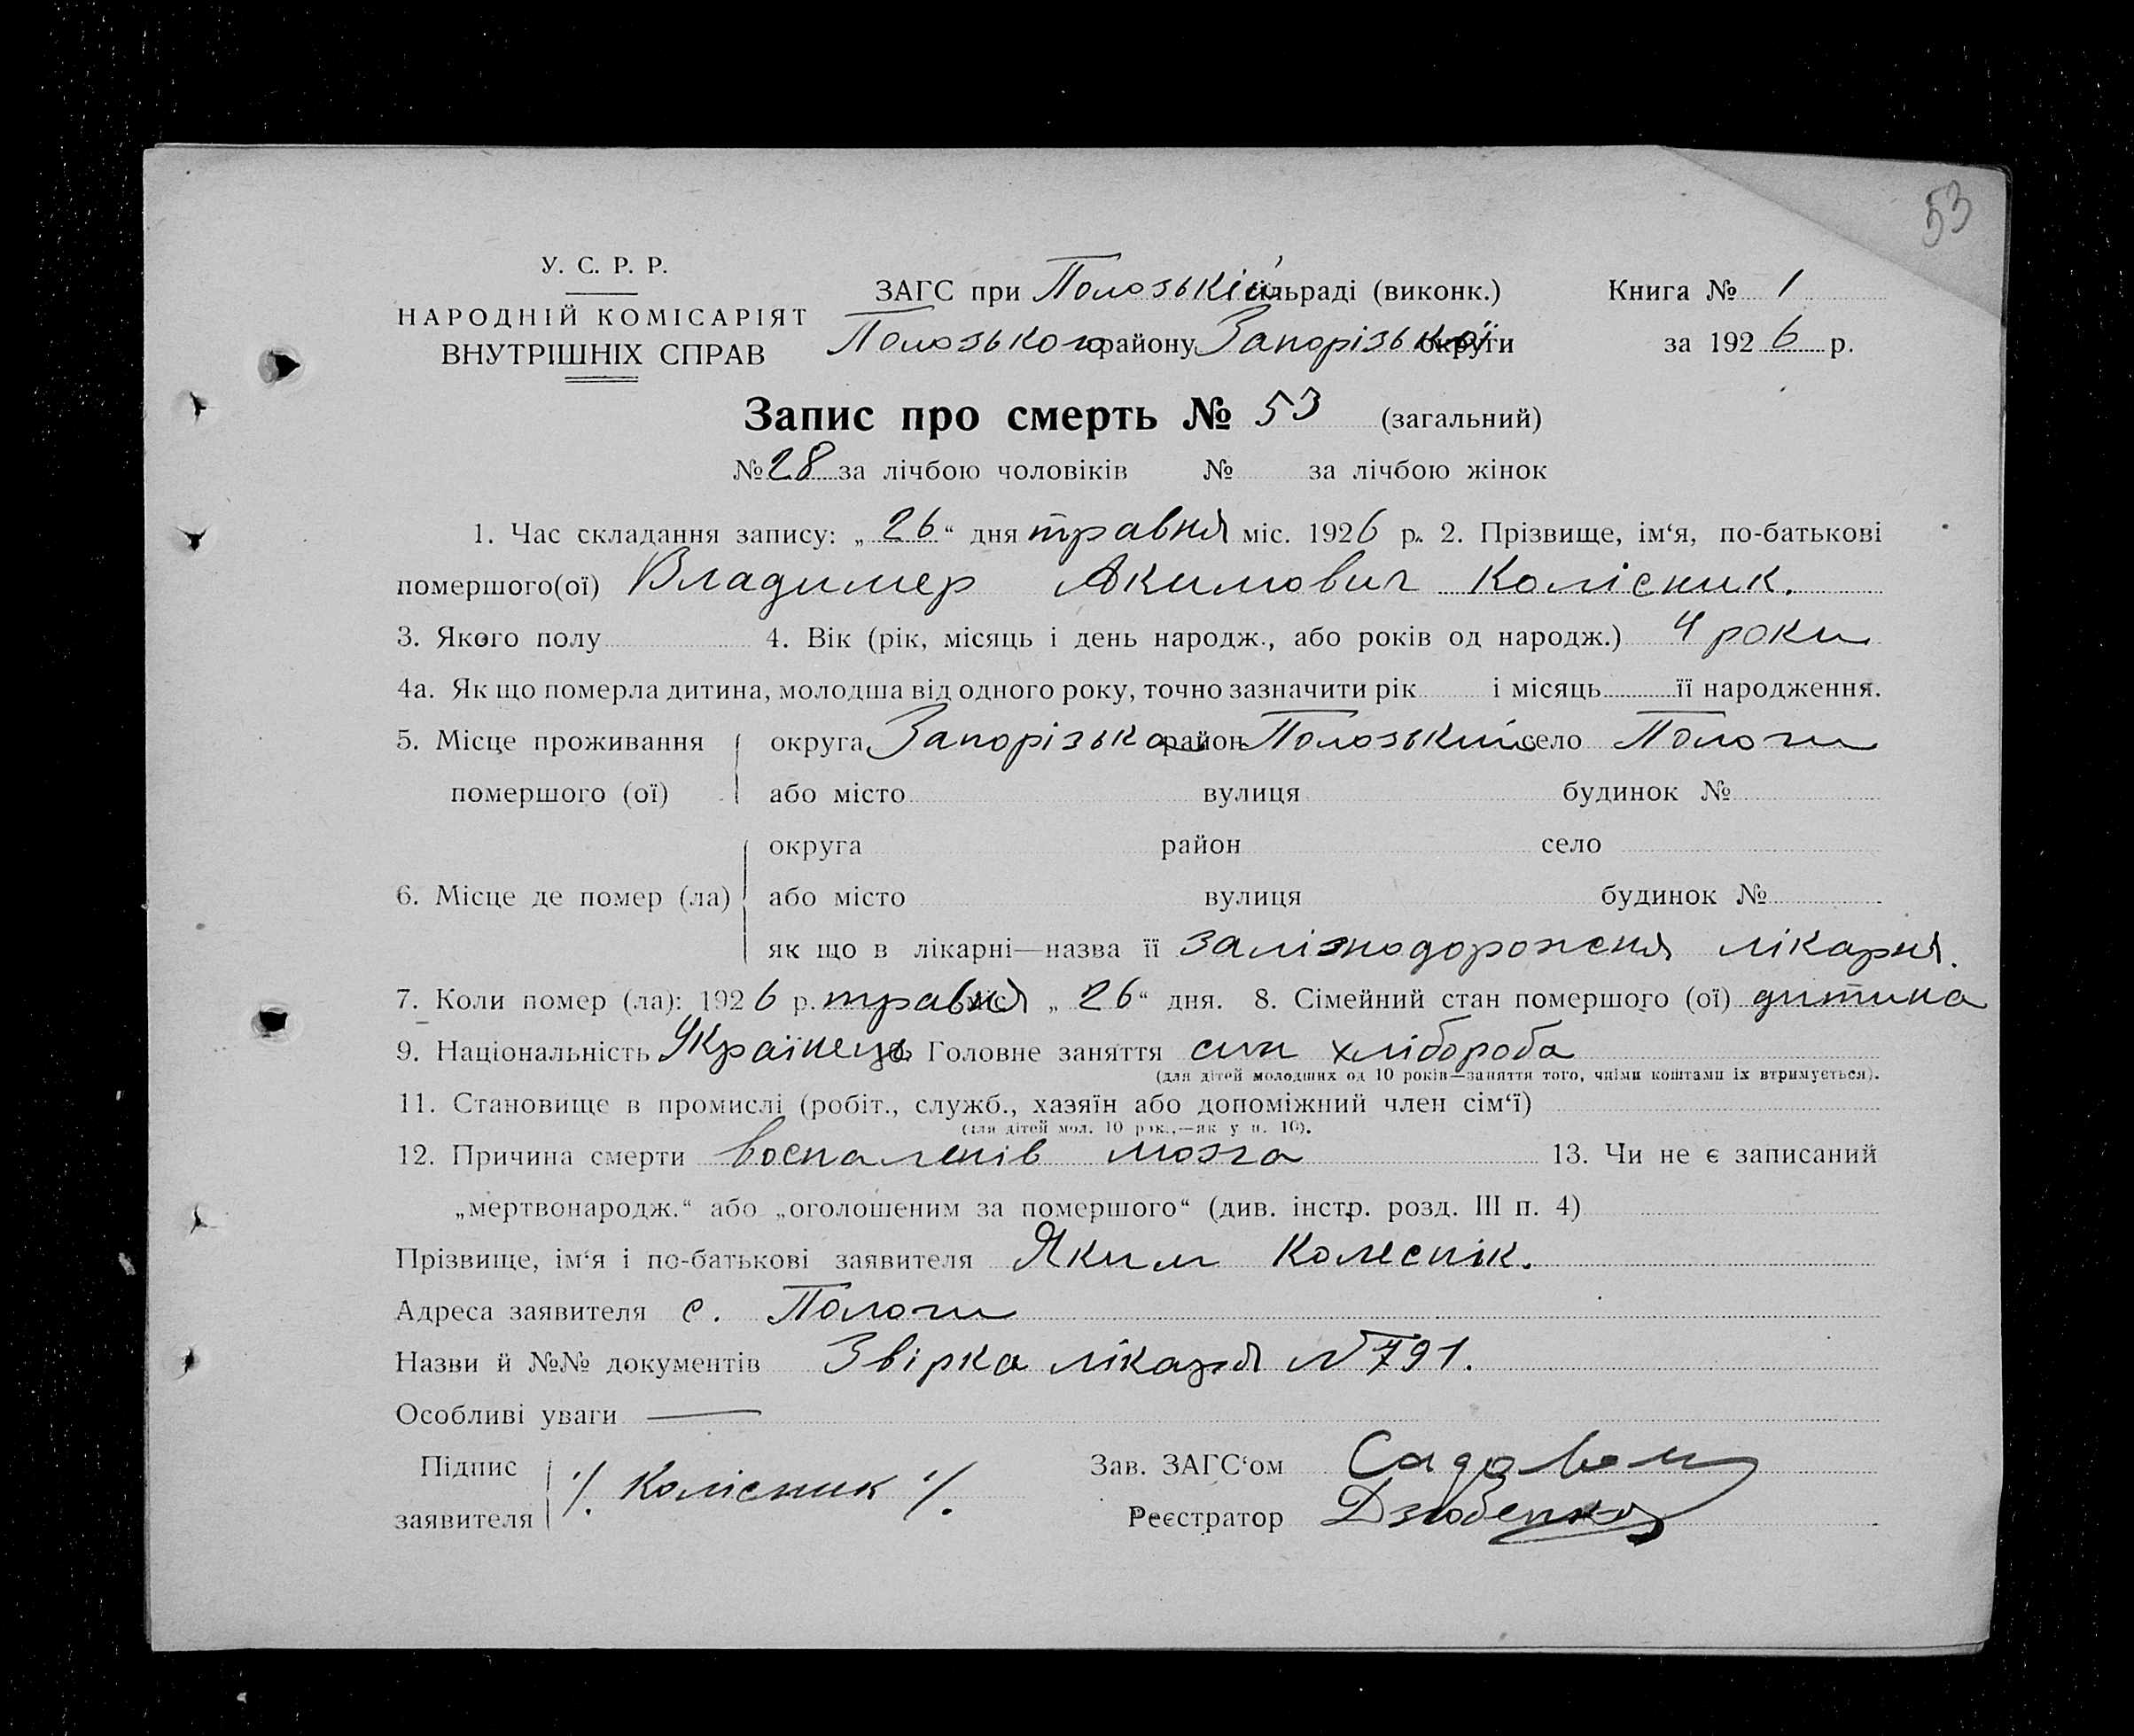 53
У. С. Р. Р.
НАРОДНІЙ КОМІСАРІЯТ
ВНУТРІШНІХ СПРАВ
ЗАГС при Полозькій сільраді (виконк.)
Полозького району Запорізької округи
Книга № 1
за 1926 р.
Запис про смерть № 53 (загальний)
№ 28 за лічбою чоловіків № за лічбою жінок
1. Час складання запису: „26“ дня травня міс. 1926 р. 2. Прізвище, ім‘я, по-батькові
помершого(ої) Владимер Акимович Колісник.
3. Якого полу 4. Вік (рік, місяць і день народж., або років од народж.) 4 роки
4а. Як що померла дитина, молодша від одного року, точно зазначити рік і місяць її народження.
5. Місце проживання округа Запорізька район Полозький село Пологи
помершого (ої) або місто вулиця будинок №
округа район село
6. Місце де помер (ла) або місто вулиця будинок №
як що в лікарні—назва її залізнодорожня лікарня.
7. Коли помер (ла): 1926 р. травня міс. „26“ дня. 8. Сімейний стан помершого (ої) дитина
9. Національність Українець 10. Головне заняття син хлібороба
(для дітей молодших од 10 років—заняття того, чиїми коштами їх втримується).
11. Становище в промислі (робіт., служб., хазяїн або допоміжний член сім‘ї)
(для дітей мол. 10 рок.,—як у п. 10).
12. Причина смерти воспаленів мозга 13. Чи не є записаний
„мертвонародж.“ або „оголошеним за помершого“ (див. інстр. розд. III п. 4)
Прізвище, ім‘я і по-батькові заявителя Яким Колеснік.
Адреса заявителя с. Пологи
Назви й №№ документів Звірка лікаря N 791.
Особливі уваги —
Підпис заявителя ·/. Колісник ·/.
Зав. ЗАГС‘ом
Реєстратор Дзюбенко